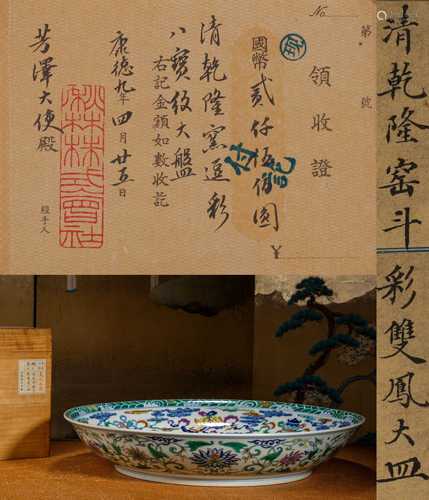 No.
第 號
領收證
國幣貳仟伍佰圓
付訖
¥
清乾隆窯逗彩
八寶紋大盤
右記金額如數收訖
康德九年四月廿五日
秋林株式會社
經手人
芳澤大使殿
清乾隆窑斗彩雙鳳大皿